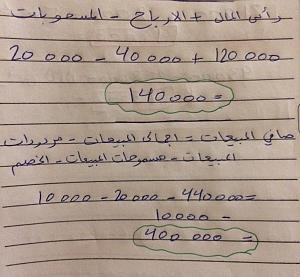 رأس المال + الارباح - المسحوبات
20 000 - 40000 + 120 000
140000 =
صافي المبيعات = اجمالي المبيعات - مردودات
المبيعات - مسموحات المبيعات - الخصم
10000 - 20000 - 440000 =
10000 -
400 000 =